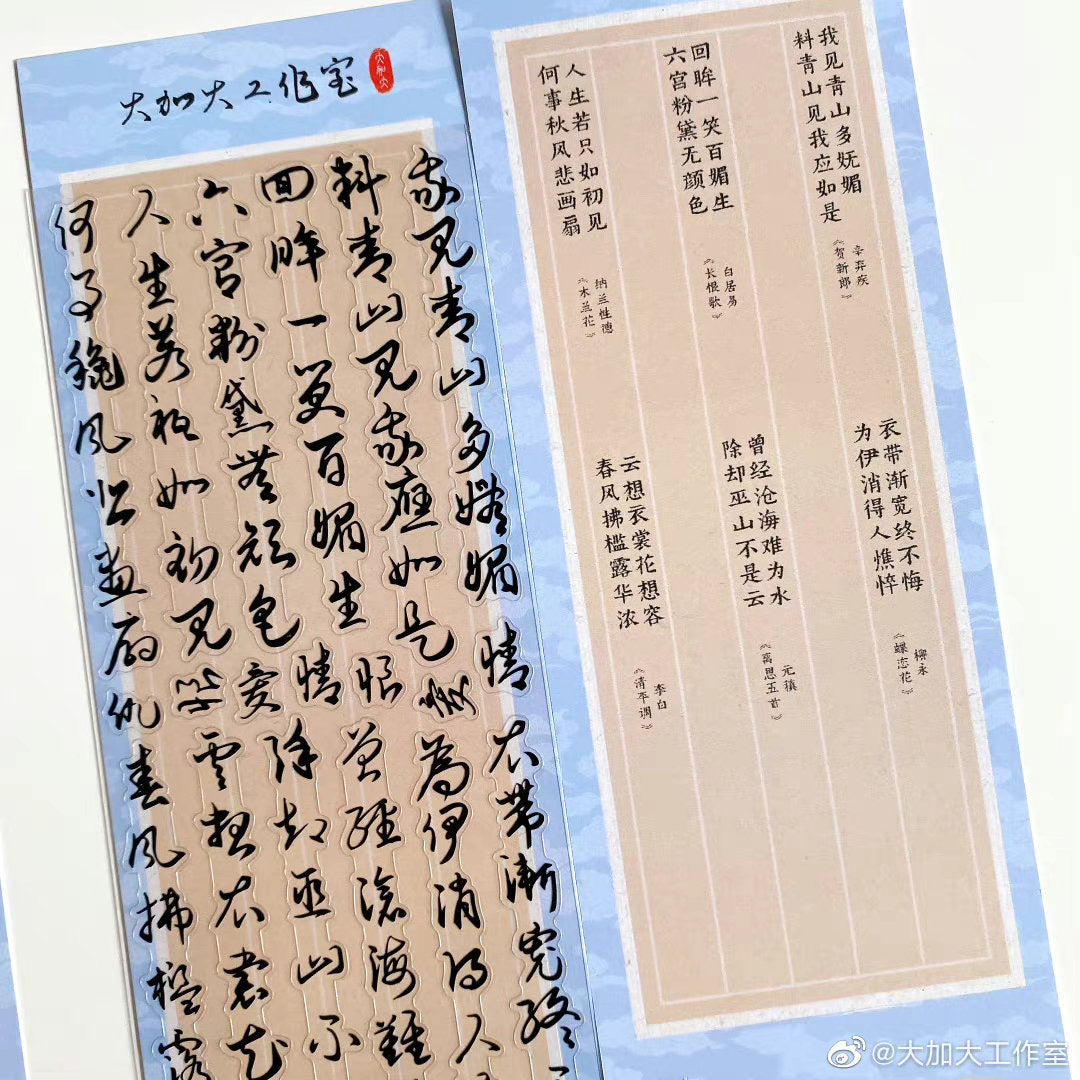 大加大工作室
大加大
我見青山多嫵媚
料青山見我應如是
回眸一笑百媚生
六宮粉黛無顏色
人生若祗如初見
何事穐風悲畫扇
情
恨
情
愛
仇
衣帶漸寬終
為伊消得人
曾經滄海難
除却巫山不
雲想衣裳花
春風拂檻露
我见青山多妩媚
料青山见我应如是
辛弃疾
《贺新郎》
回眸一笑百媚生
六宫粉黛无颜色
白居易
《长恨歌》
人生若只如初见
何事秋风悲画扇
纳兰性德
《木兰花》
衣带渐宽终不悔
为伊消得人憔悴
柳永
《蝶恋花》
曾经沧海难为水
除却巫山不是云
元稹
《离思五首》
云想衣裳花想容
春风拂槛露华浓
李白
《清平调》
@大加大工作室